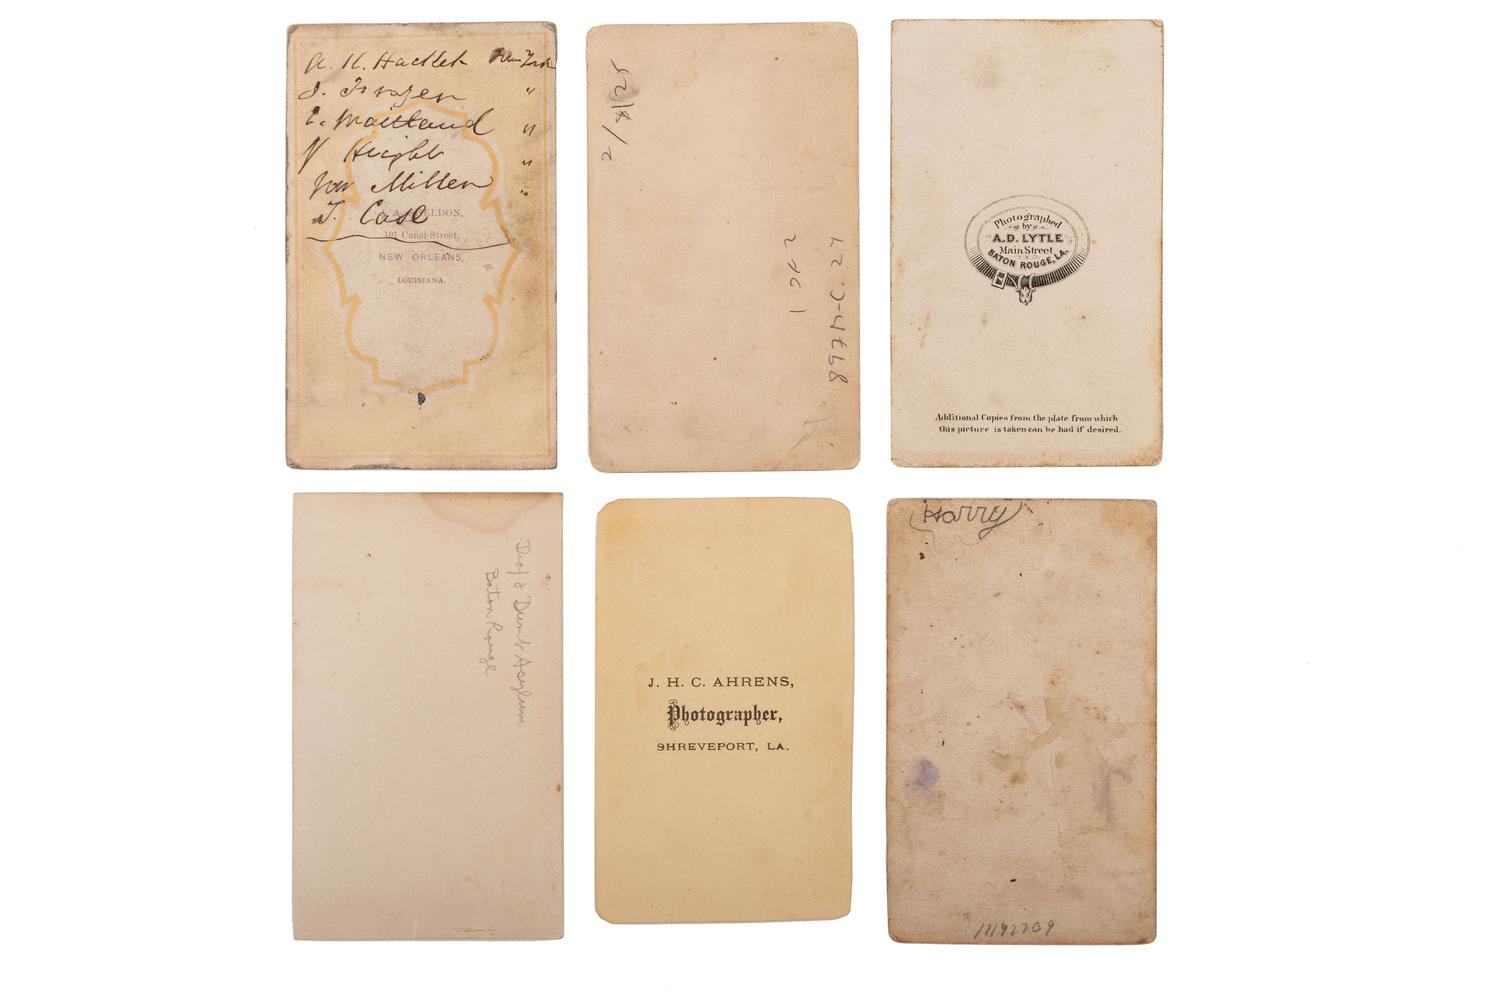 A. H. Hacklet New York
J. Frazer "
E. Maitland "
V Height "
Miller "
T. Case
ELDON,
101 Canal Street,
NEW ORLEANS,
LOUISIANA.
2/8/25
897H-C. 27
Photographed
by
A.D. LYTLE
Main Street
BATON ROUGE, LA.
Additional Copies from the plate from which
this picture is taken can be had if desired.
Deaf & Dumb Asylum
Baton Rouge
J. H. C. AHRENS,
Photographer,
SHREVEPORT, LA.
Harry
11192709